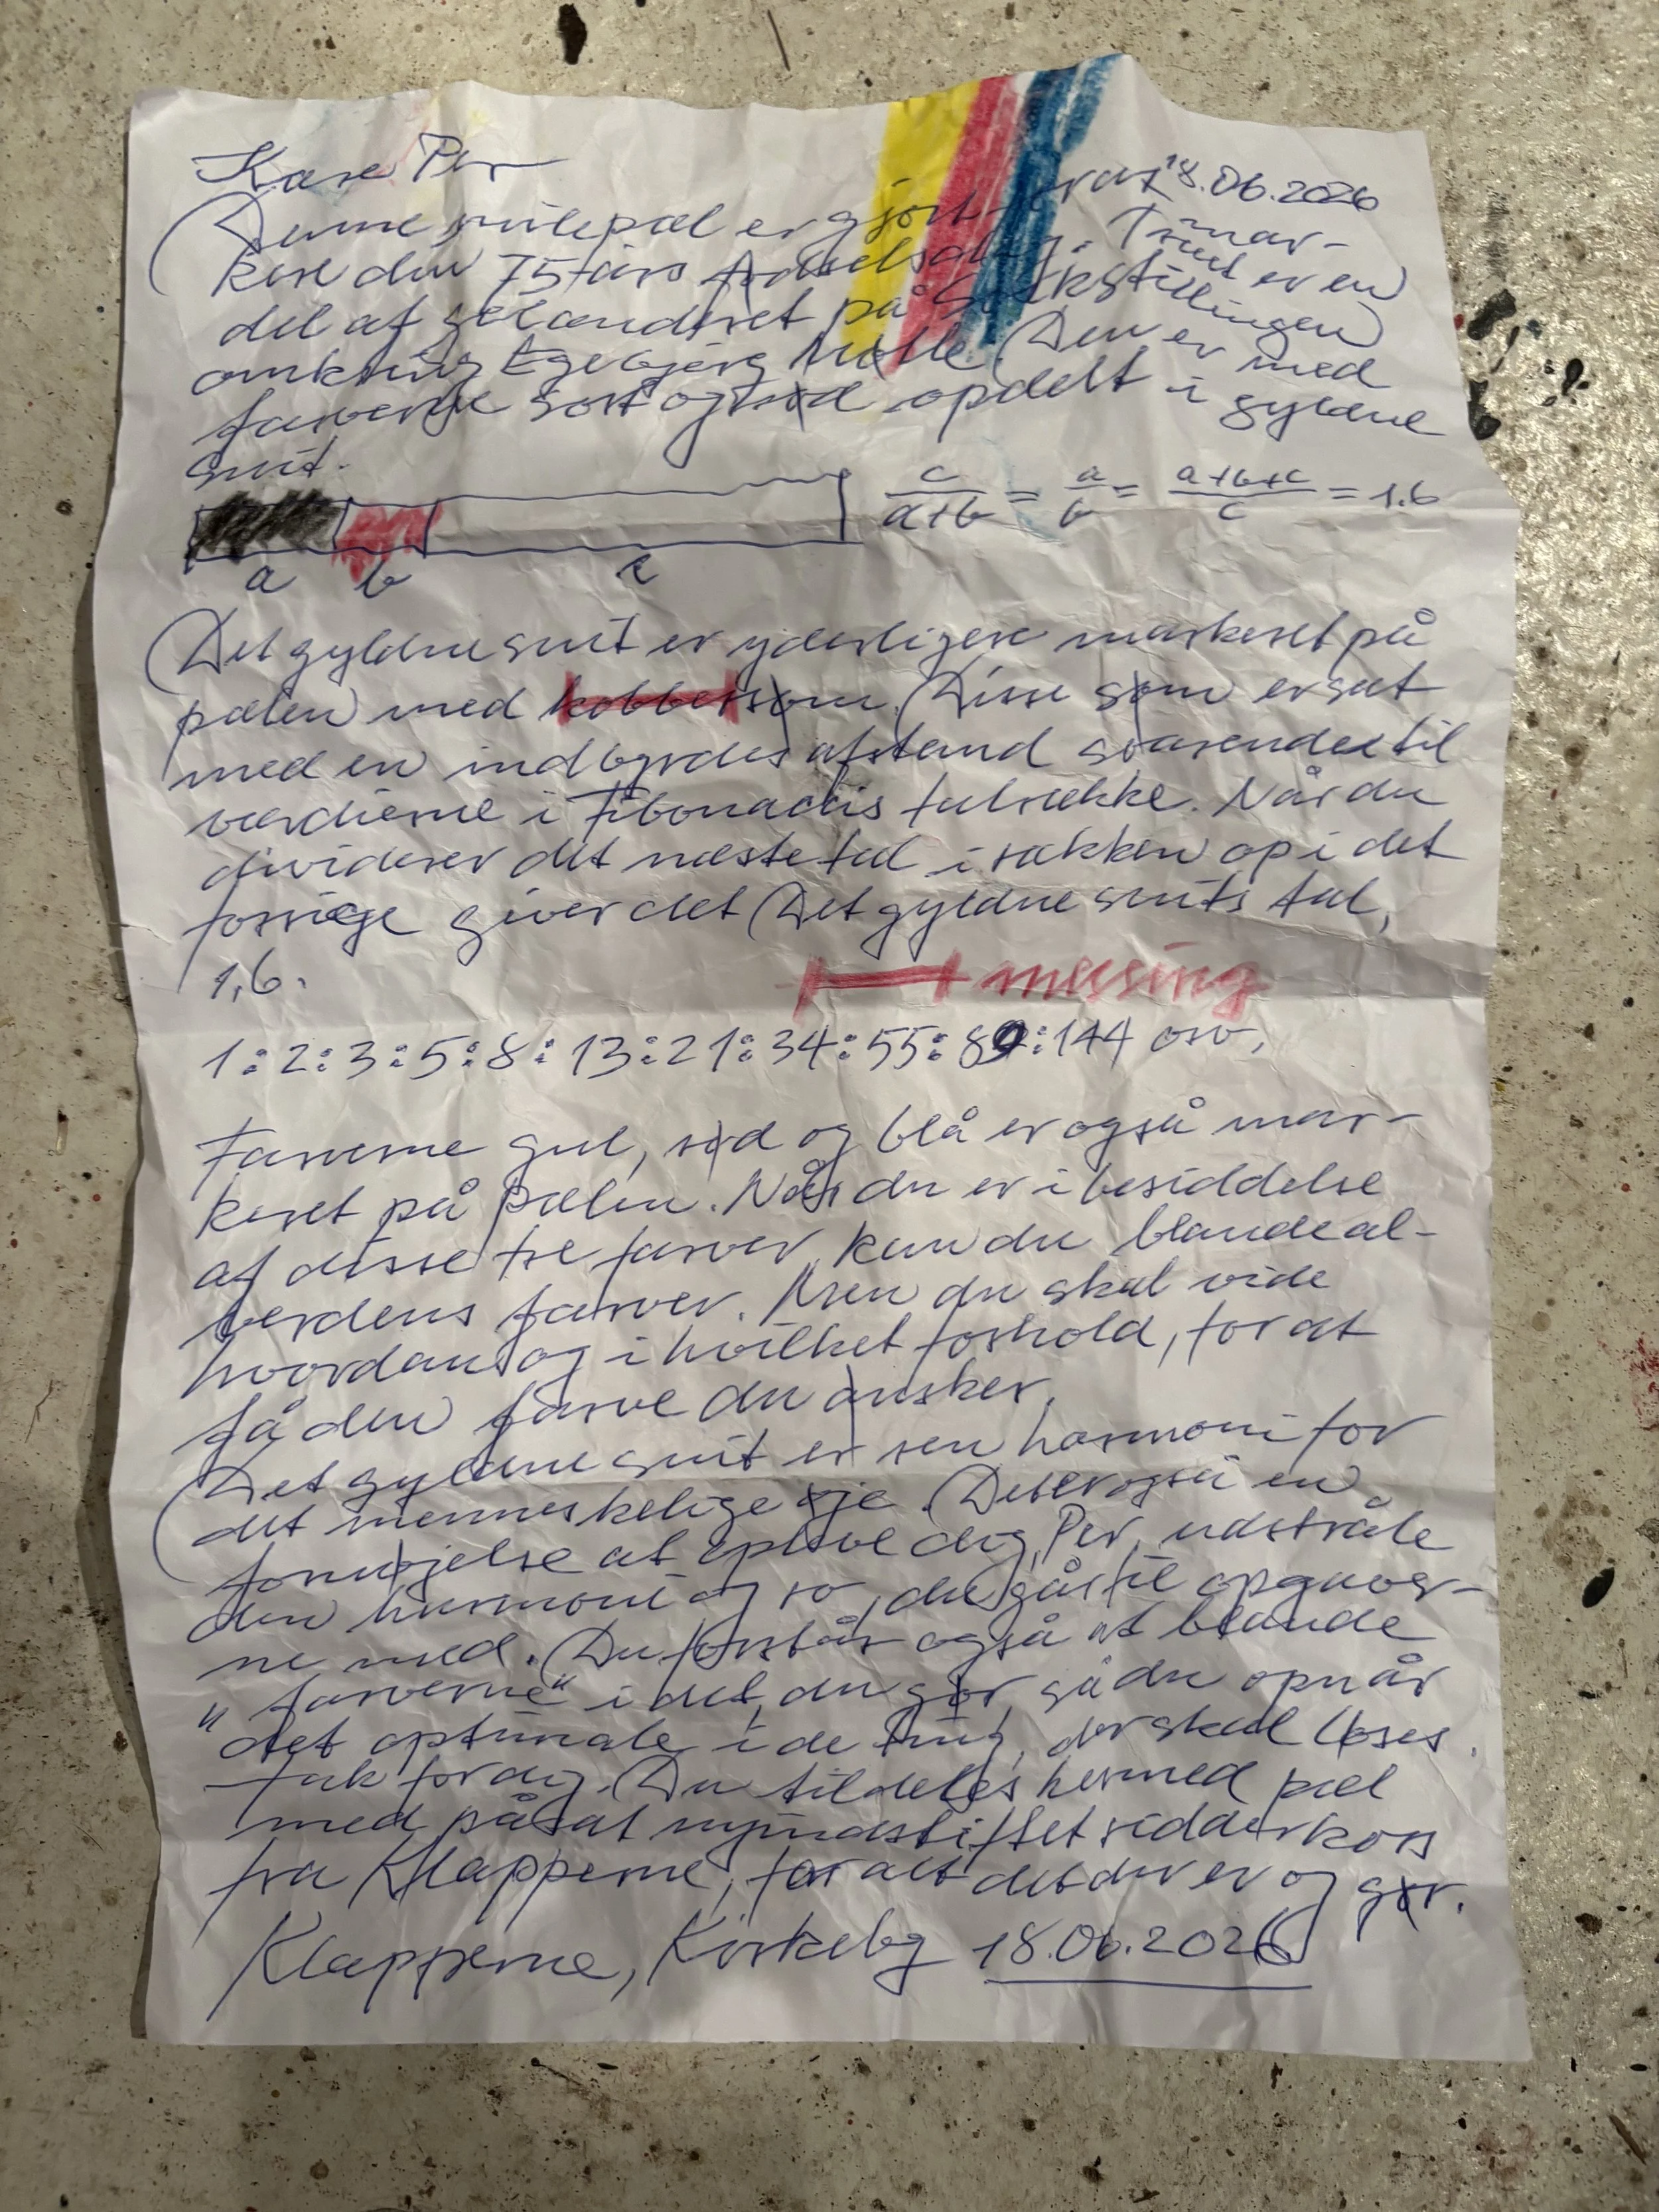 Kære Per
18.06.2026
Denne milepæl er gjort for at mar-
kere din 75 års fødselsdag. Træet er en
del af gelænderet på Stokstillingen
omkring Egebjerg Mølle. Den er med
farverne sort og rød opdelt i gyldne
snit.
c/(a+b) = a/b = (a+b+c)/c = 1.6
a b c
Det gyldne snit er yderligere markeret på
pælen med kobbersøm. Disse søm er sat
med en indbyrdes afstand svarende til
værdierne i Fibonaccis talrække. Når du
dividerer det næste tal i rækken op i det
forrige giver det Det gyldne snits tal,
1,6.
messing
1:2:3:5:8:13:21:34:55:89:144 osv.
Farverne gul, rød og blå er også mar-
keret på pælen. Når du er i besiddelse
af disse tre farver, kan du blande al-
verdens farver. Men du skal vide
hvordan og i hvilket forhold, for at
få den farve du ønsker.
Det gyldne snit er ren harmoni for
det menneskelige øje. Det er også en
fornøjelse at opleve dig, Per, udstråle
den harmoni og ro, du går til opgaver-
ne med. Du forstår også at blande
"farverne" i det, du gør, så du opnår
det optimale i de ting, der skal løses.
Tak for dig. Du tildeles hermed pæl
med påsat nyindstiftet ridderkors
fra Klapperne, for alt det du er og gør.
Klapperne, Kirkeby 18.06.2026